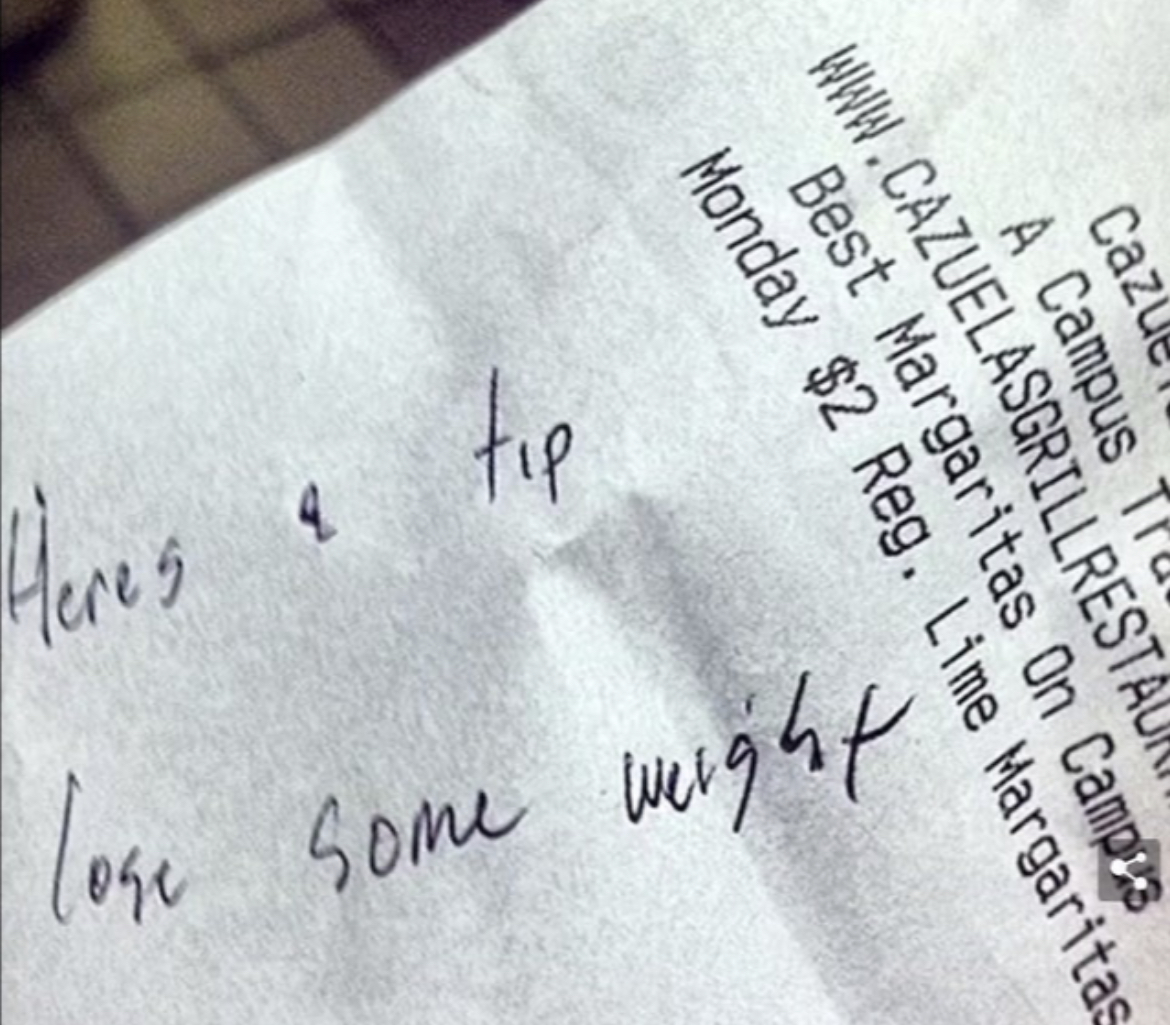 A Campus
WWW.CAZUELASGRILLRESTAUR
Best Margaritas On Campus
Monday $2 Reg. Lime Margaritas
Heres a tip
lose some weight